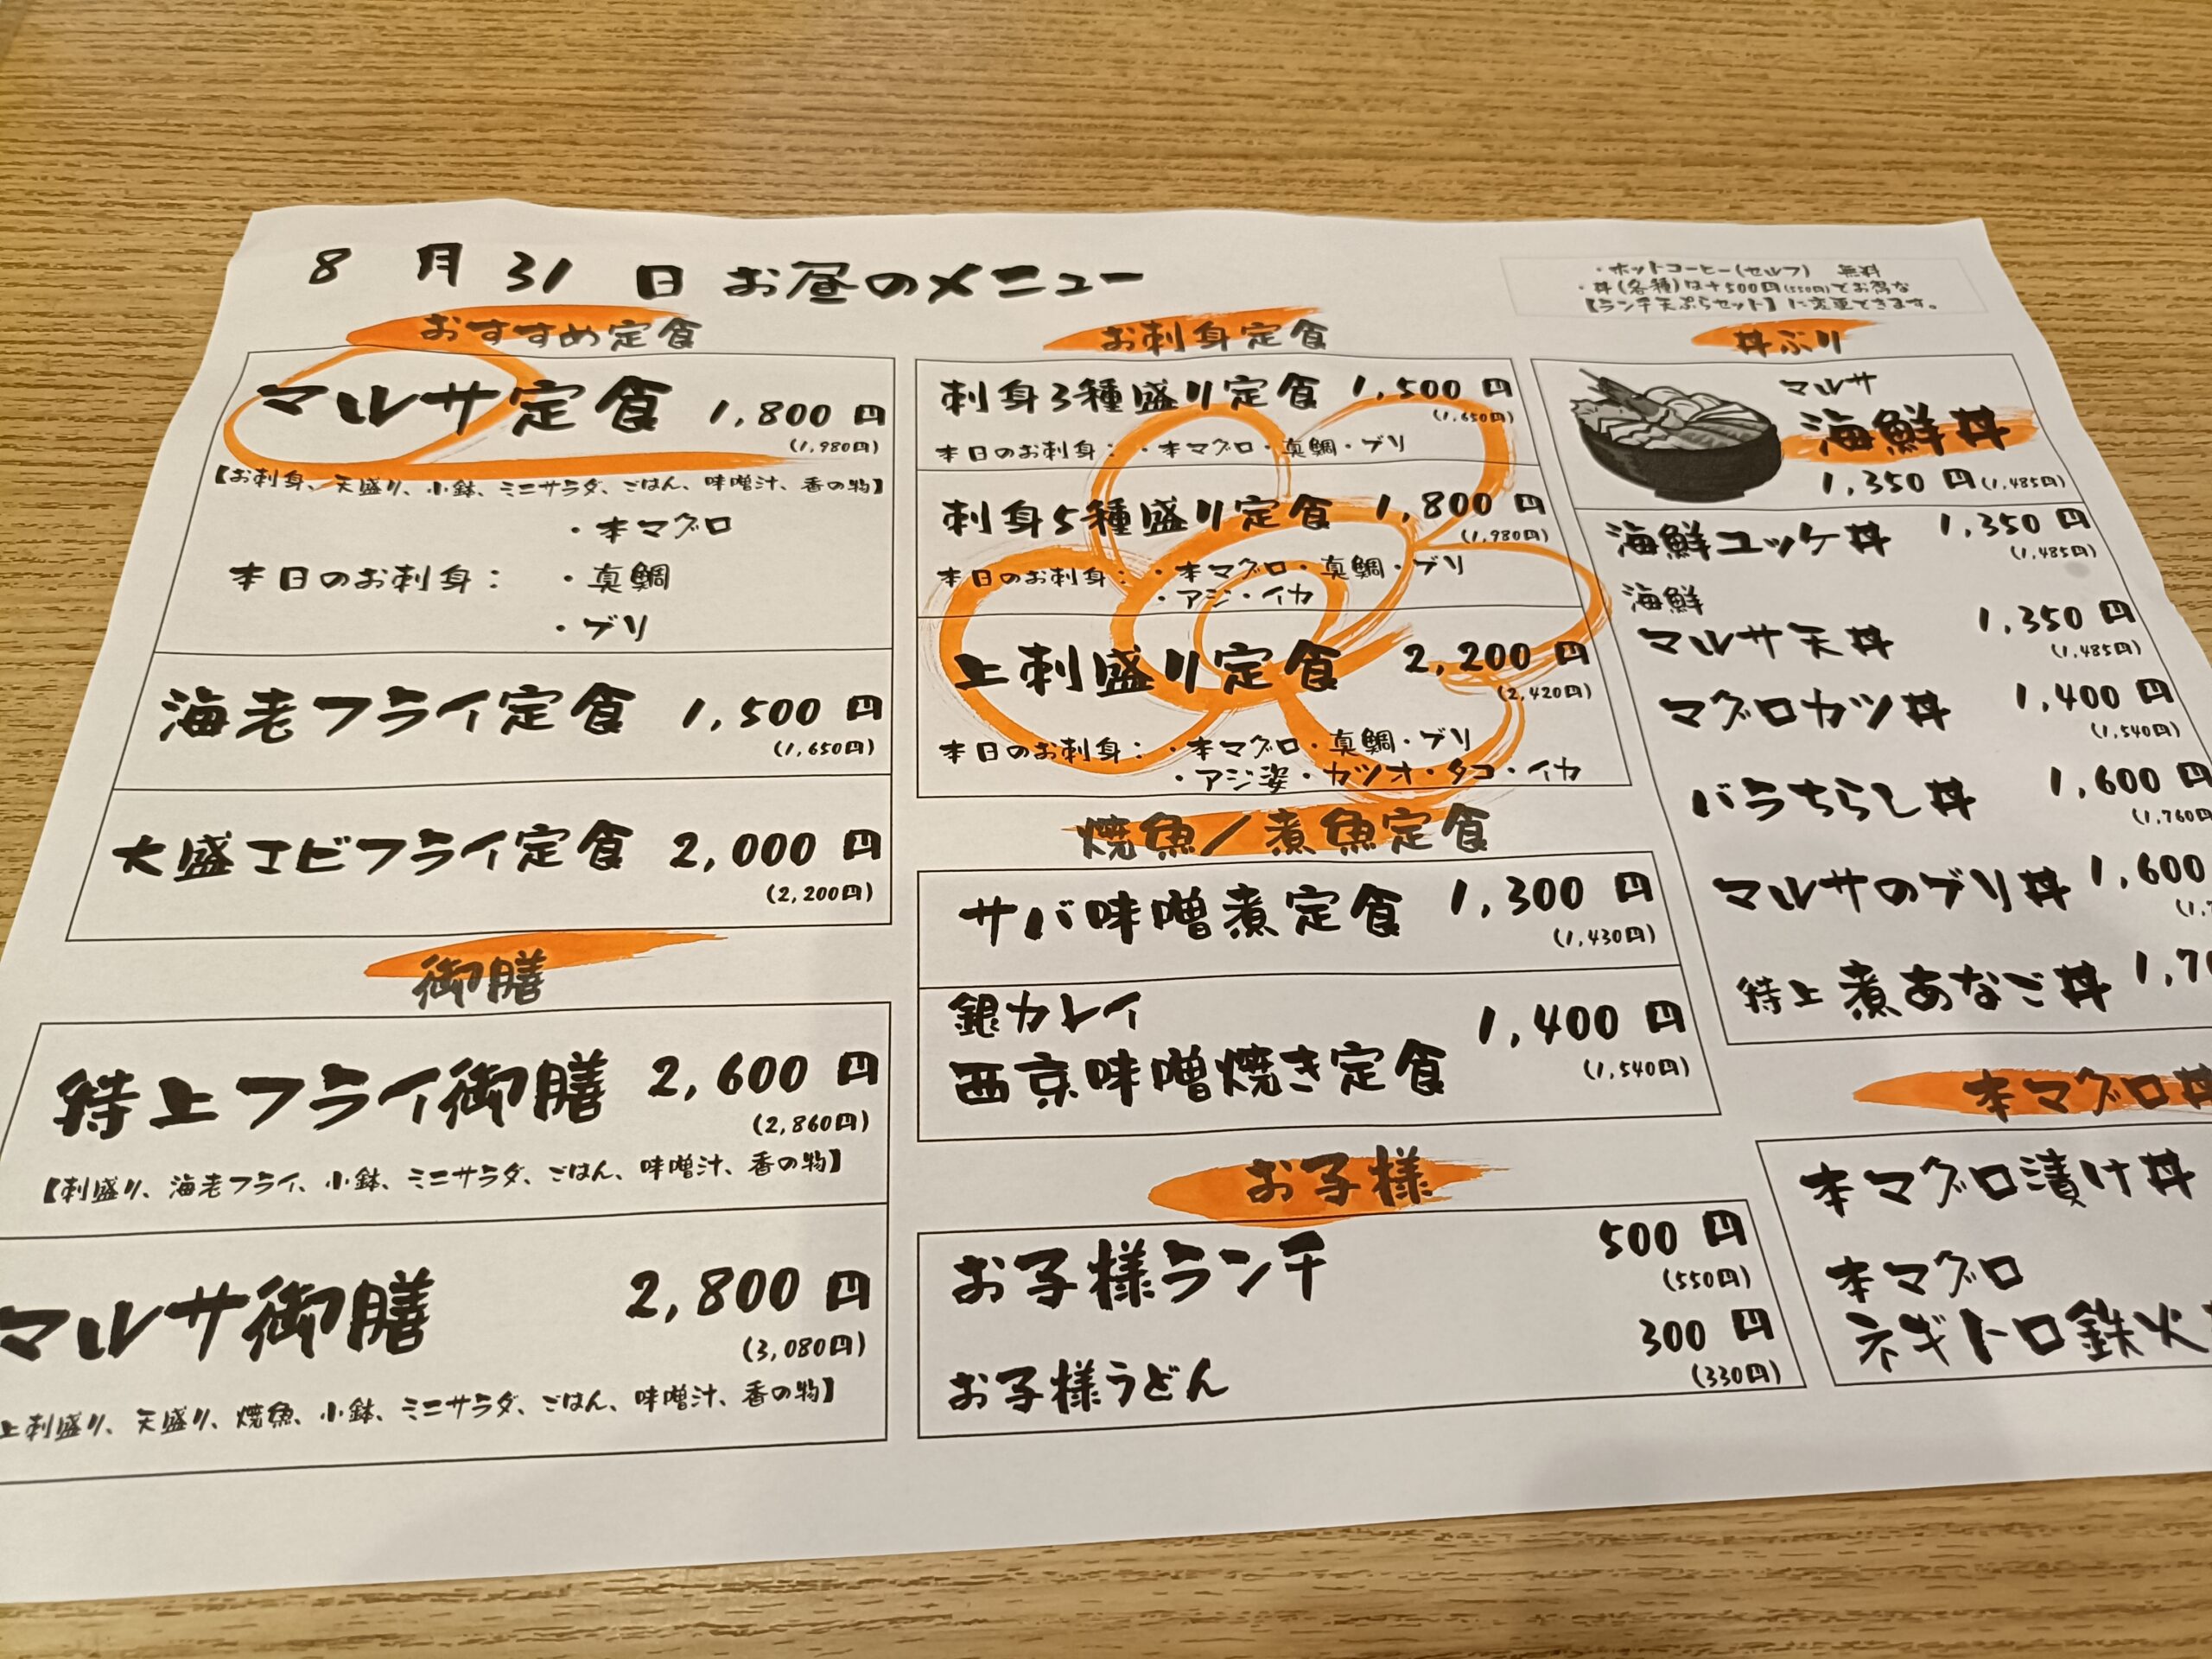 8月31日 お昼のメニュー
・ホットコーヒー(セルフ) 無料
・丼(各種)は+500円(550円)でお得な
【ランチ天ぷらセット】に変更できます。
おすすめ定食
マルサ定食 1,800円
(1,980円)
【お刺身、天盛り、小鉢、ミニサラダ、ごはん、味噌汁、香の物】
・本マグロ
本日のお刺身： ・真鯛
・ブリ
海老フライ定食 1,500円
(1,650円)
大盛エビフライ定食 2,000円
(2,200円)
御膳
特上フライ御膳 2,600円
(2,860円)
【刺盛り、海老フライ、小鉢、ミニサラダ、ごはん、味噌汁、香の物】
マルサ御膳 2,800円
(3,080円)
上刺盛り、天盛り、焼魚、小鉢、ミニサラダ、ごはん、味噌汁、香の物】
お刺身定食
刺身3種盛り定食 1,500円
(1,650円)
本日のお刺身： ・本マグロ・真鯛・ブリ
刺身5種盛り定食 1,800円
(1,980円)
本日のお刺身： ・本マグロ・真鯛・ブリ
・アジ・イカ
上刺盛り定食 2,200円
(2,420円)
本日のお刺身： ・本マグロ・真鯛・ブリ
・アジ姿・カツオ・タコ・イカ
焼魚/煮魚定食
サバ味噌煮定食 1,300円
(1,430円)
銀カレイ
西京味噌焼き定食 1,400円
(1,540円)
お子様
お子様ランチ 500円
(550円)
お子様うどん 300円
(330円)
丼ぶり
マルサ
海鮮丼
1,350円(1,485円)
海鮮ユッケ丼 1,350円
(1,485円)
海鮮
マルサ天丼 1,350円
(1,485円)
マグロカツ丼 1,400円
(1,540円)
バラちらし丼 1,600円
(1,760円
マルサのブリ丼 1,600
特上煮あなご丼
本マグロ丼
本マグロ漬け丼
本マグロ
ネギトロ鉄火